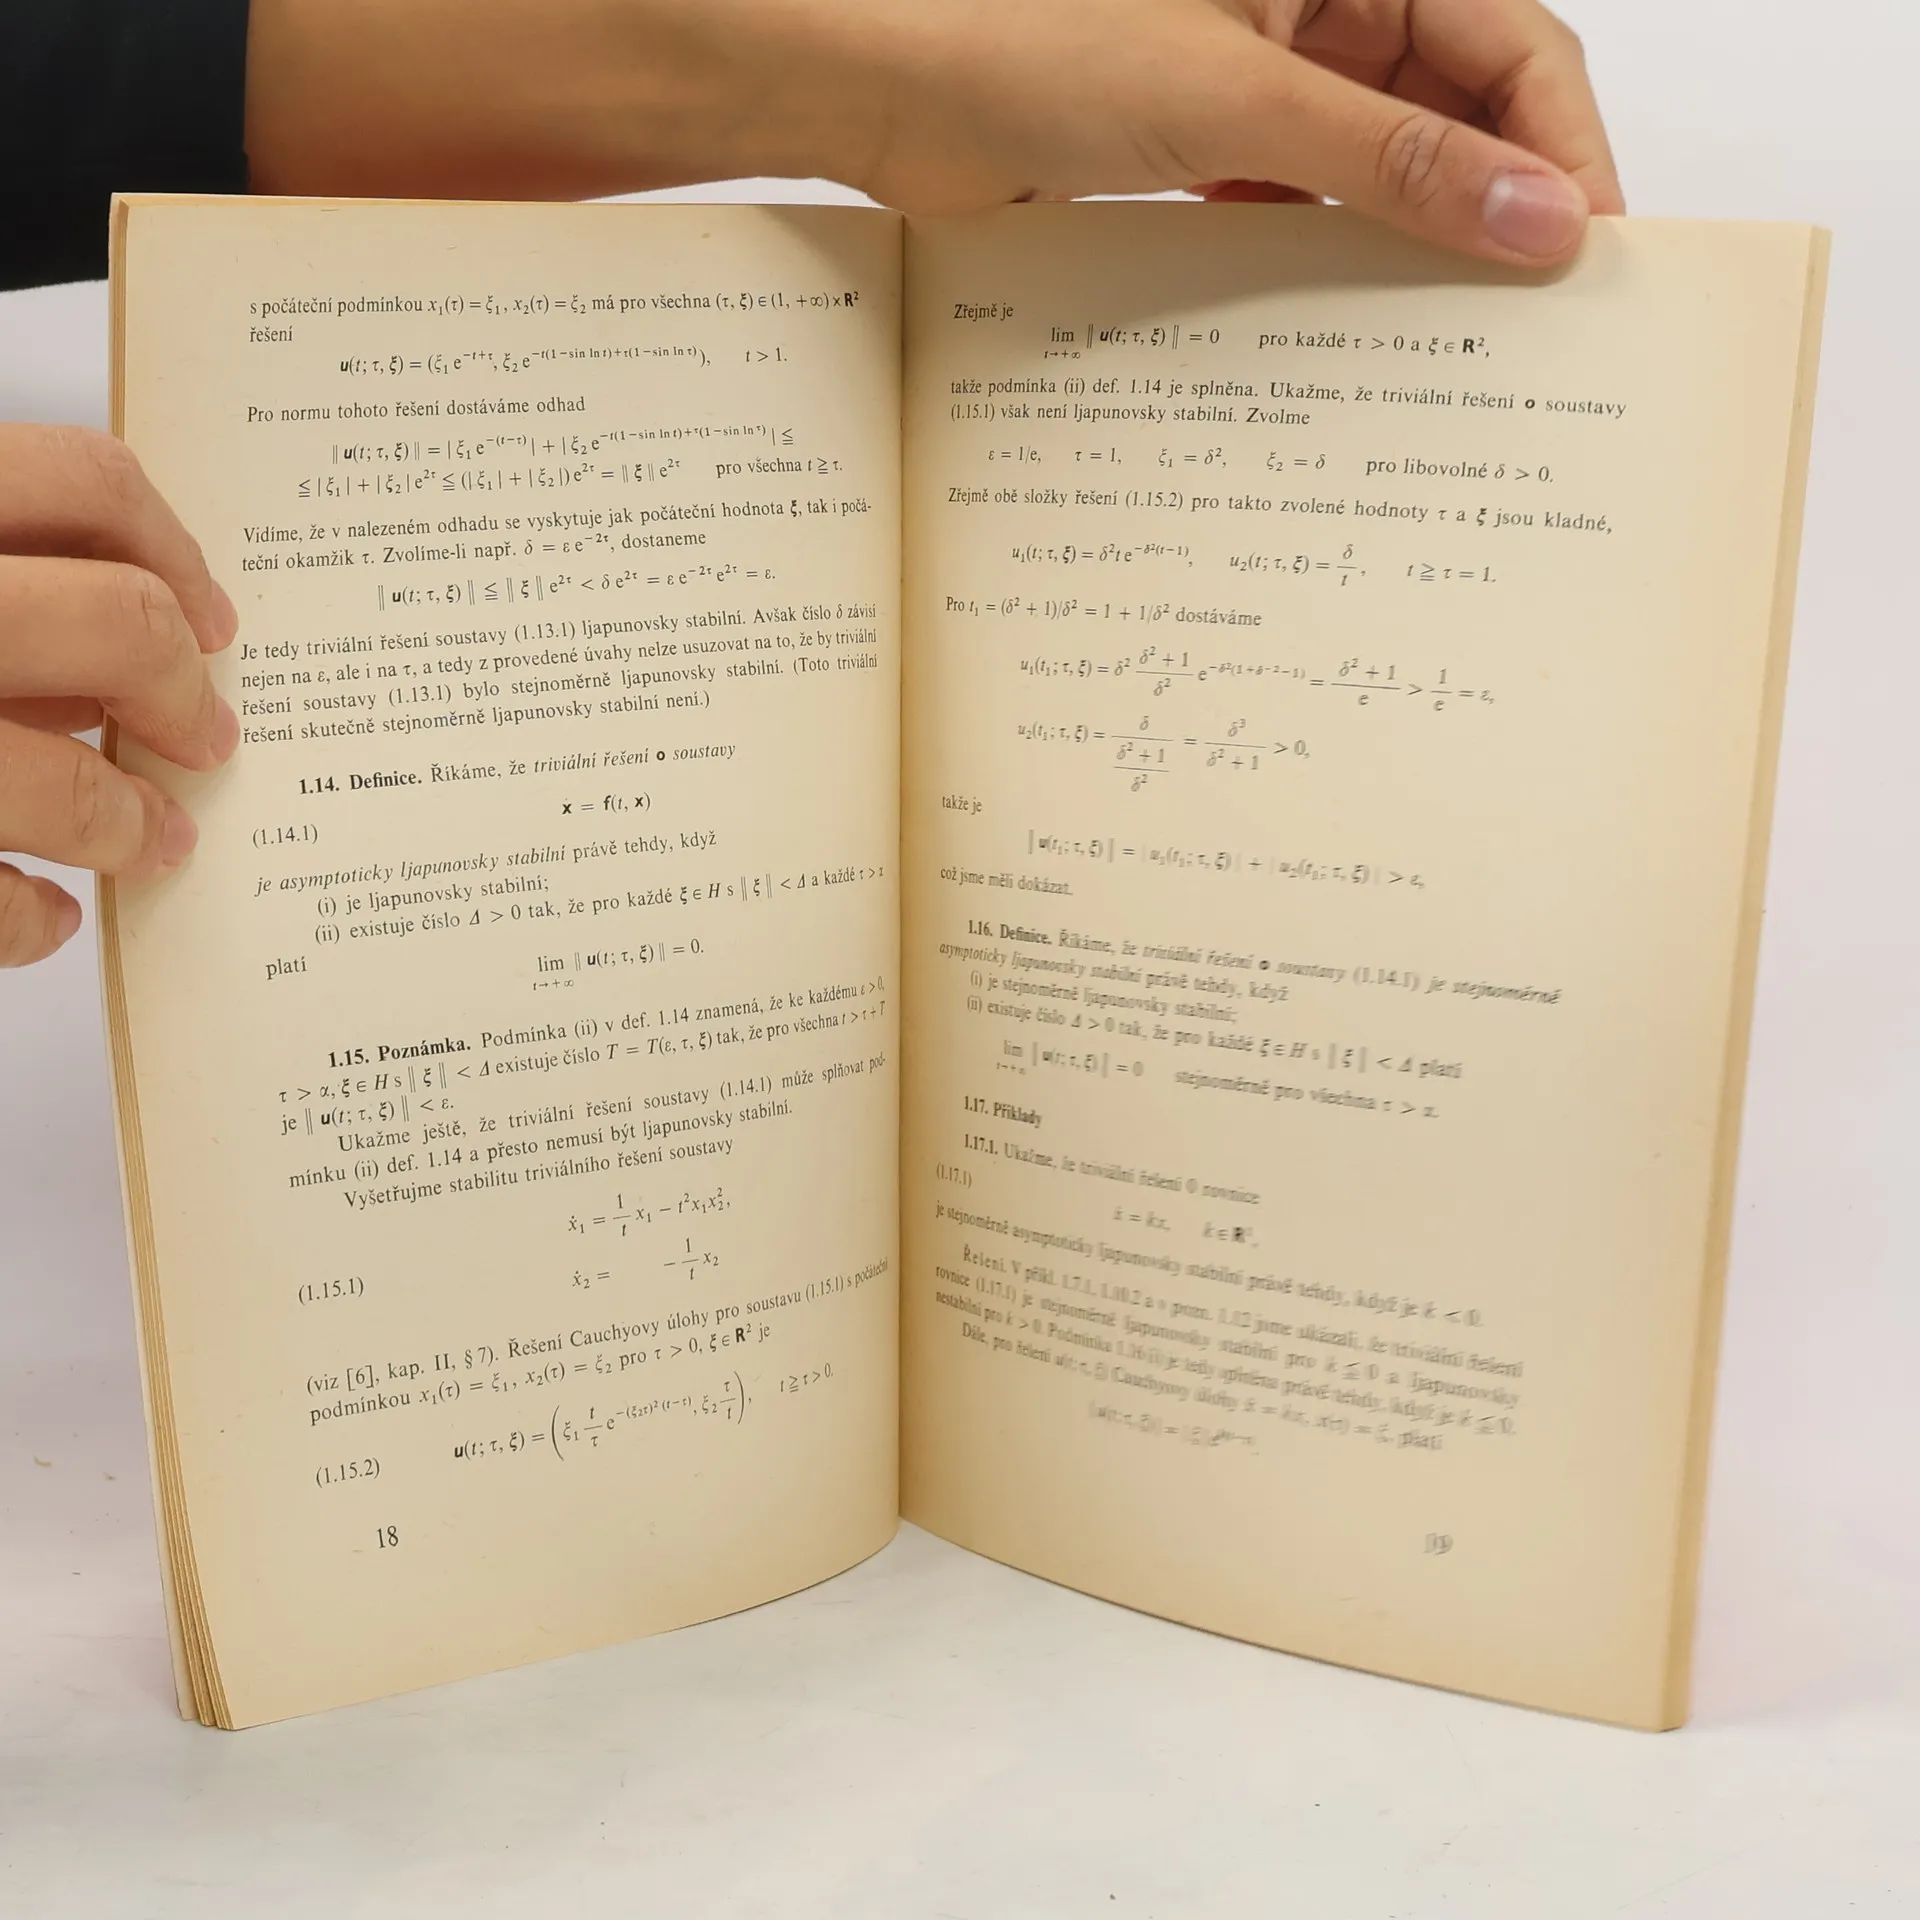 s počáteční podmínkou x₁(τ) = ξ₁, x₂(τ) = ξ₂ má pro všechna (τ, ξ) ∈ (1, +∞) × R²
řešení
u(t; τ, ξ) = (ξ₁ e^{−t+τ}, ξ₂ e^{−t(1−sin ln t)+τ(1−sin ln τ)}), t > 1.
Pro normu tohoto řešení dostáváme odhad
‖ u(t; τ, ξ) ‖ = | ξ₁ e^{−(t−τ)} | + | ξ₂ e^{−t(1−sin ln t)+τ(1−sin ln τ)} | ≦
≦ | ξ₁ | + | ξ₂ | e^{2τ} ≦ (| ξ₁ | + | ξ₂ |) e^{2τ} = ‖ ξ ‖ e^{2τ} pro všechna t ≧ τ.
Vidíme, že v nalezeném odhadu se vyskytuje jak počáteční hodnota ξ, tak i počá-
teční okamžik τ. Zvolíme-li např. δ = ε e^{−2τ}, dostaneme
‖ u(t; τ, ξ) ‖ ≦ ‖ ξ ‖ e^{2τ} < δ e^{2τ} = ε e^{−2τ} e^{2τ} = ε.
Je tedy triviální řešení soustavy (1.13.1) ljapunovsky stabilní. Avšak číslo δ závisí
nejen na ε, ale i na τ, a tedy z provedené úvahy nelze usuzovat na to, že by triviální
řešení soustavy (1.13.1) bylo stejnoměrně ljapunovsky stabilní. (Toto triviální
řešení skutečně stejnoměrně ljapunovsky stabilní není.)
1.14. Definice. Říkáme, že triviální řešení o soustavy
(1.14.1) ẋ = f(t, x)
je asymptoticky ljapunovsky stabilní právě tehdy, když
(i) je ljapunovsky stabilní;
(ii) existuje číslo Δ > 0 tak, že pro každé ξ ∈ H s ‖ ξ ‖ < Δ a každé τ > α
platí
lim ‖ u(t; τ, ξ) ‖ = 0.
t→+∞
1.15. Poznámka. Podmínka (ii) v def. 1.14 znamená, že ke každému ε > 0,
τ > α, ξ ∈ H s ‖ ξ ‖ < Δ existuje číslo T = T(ε, τ, ξ) tak, že pro všechna t > τ + T
je ‖ u(t; τ, ξ) ‖ < ε.
Ukažme ještě, že triviální řešení soustavy (1.14.1) může splňovat pod-
mínku (ii) def. 1.14 a přesto nemusí být ljapunovsky stabilní.
Vyšetřujme stabilitu triviálního řešení soustavy
ẋ₁ = 1/t x₁ − t²x₁x₂²,
(1.15.1) ẋ₂ = − 1/t x₂
(viz [6], kap. II, § 7). Řešení Cauchyovy úlohy pro soustavu (1.15.1) s počáteční
podmínkou x₁(τ) = ξ₁, x₂(τ) = ξ₂ pro τ > 0, ξ ∈ R² je
(1.15.2) u(t; τ, ξ) = (ξ₁ t/τ e^{−(ξ₂τ)²(t−τ)}, ξ₂ τ/t), t ≧ τ > 0.
18
Zřejmě je
lim ‖ u(t; τ, ξ) ‖ = 0 pro každé τ > 0 a ξ ∈ R²,
t→+∞
takže podmínka (ii) def. 1.14 je splněna. Ukažme, že triviální řešení o soustavy
(1.15.1) však není ljapunovsky stabilní. Zvolme
ε = 1/e, τ = 1, ξ₁ = δ², ξ₂ = δ pro libovolné δ > 0.
Zřejmě obě složky řešení (1.15.2) pro takto zvolené hodnoty τ a ξ jsou kladné,
u₁(t; τ, ξ) = δ²t e^{−δ²(t−1)}, u₂(t; τ, ξ) = δ/t, t ≧ τ = 1.
Pro t₁ = (δ² + 1)/δ² = 1 + 1/δ² dostáváme
u₁(t₁; τ, ξ) = δ² (δ² + 1)/δ² e^{−δ²(1+δ^{−2}−1)} = (δ² + 1)/e > 1/e = ε,
u₂(t₁; τ, ξ) = δ/((δ² + 1)/δ²) = δ³/(δ² + 1) > 0,
takže je
‖ u(t₁; τ, ξ) ‖ = | u₁(t₁; τ, ξ) | + | u₂(t₁; τ, ξ) | > ε,
což jsme měli dokázat.
1.16. Definice. Říkáme, že triviální řešení o soustavy (1.14.1) je stejnoměrně
asymptoticky ljapunovsky stabilní právě tehdy, když
(i) je stejnoměrně ljapunovsky stabilní;
(ii) existuje číslo Δ > 0 tak, že pro každé ξ ∈ H s ‖ ξ ‖ < Δ platí
lim ‖ u(t; τ, ξ) ‖ = 0 stejnoměrně pro všechna τ > α.
t→+∞
1.17. Příklady
1.17.1. Ukažme, že triviální řešení 0 rovnice
(1.17.1) ẋ = kx, k ∈ R¹,
je stejnoměrně asymptoticky ljapunovsky stabilní právě tehdy, když je k < 0.
Řešení. V příkl. 1.7.1, 1.10.2 a v pozn. 1.12 jsme ukázali, že triviální řešení
rovnice (1.17.1) je stejnoměrně ljapunovsky stabilní pro k ≦ 0 a ljapunovsky
nestabilní pro k > 0. Podmínka 1.16 (i) je tedy splněna právě tehdy, když je k ≦ 0.
Dále, pro řešení u(t; τ, ξ) Cauchyovy úlohy ẋ = kx, x(τ) = ξ, platí
19